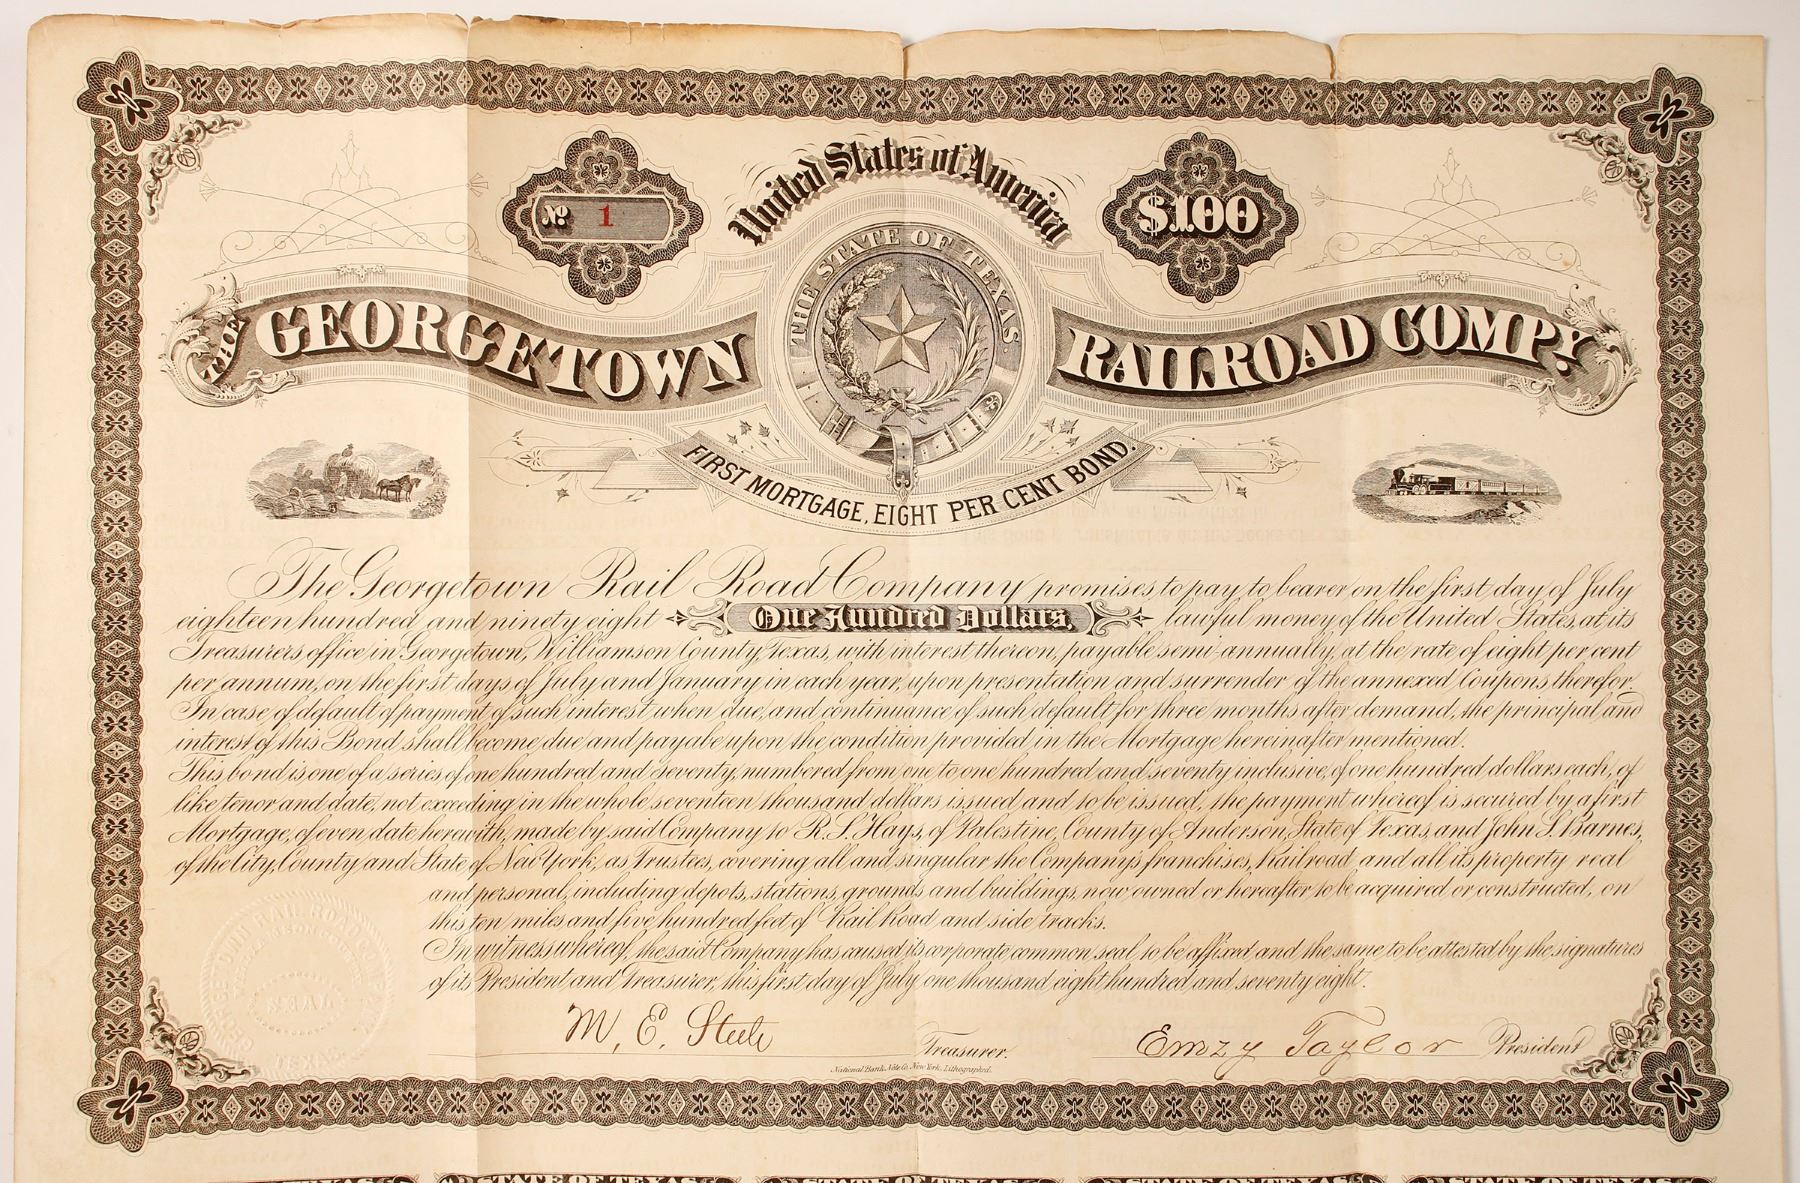 United States of America
No 1
$100
THE STATE OF TEXAS.
THE GEORGETOWN RAILROAD COMPY.
FIRST MORTGAGE, EIGHT PER CENT BOND.
The Georgetown Rail Road Company promises to pay to bearer on the first day of July
eighteen hundred and ninety eight One Hundred Dollars, lawful money of the United States, at its
Treasurers office in Georgetown, Williamson County, Texas, with interest thereon, payable semi-annually, at the rate of eight per cent
per annum, on the first days of July and January in each year, upon presentation and surrender of the annexed Coupons therefor.
In case of default of payment of such interest when due, and continuance of such default for three months after demand, the principal and
interest of this Bond shall become due and payable upon the condition provided in the Mortgage hereinafter mentioned.
This bond is one of a series of one hundred and seventy, numbered from one to one hundred and seventy inclusive, of one hundred dollars each, of
like tenor and date, not exceeding in the whole seventeen thousand dollars issued and to be issued, the payment whereof is secured by a first
Mortgage, of even date herewith, made by said Company to R. S. Hays, of Palestine, County of Anderson, State of Texas, and John S. Barnes,
of the City, County and State of New York, as Trustees, covering all and singular the Company's franchises, Railroad and all its property real
and personal, including depots, stations, grounds and buildings, now owned or hereafter to be acquired or constructed, on
this ten miles and five hundred feet of Rail Road and side tracks.
In witness whereof, the said Company has caused its corporate common seal to be affixed and the same to be attested by the signatures
of its President and Treasurer, this first day of July one thousand eight hundred and seventy eight.
SEAL
M. E. Steele Treasurer.
Emzy Taylor President
National Bank Note Co. New York. Lithographed.
STATE OF TEXAS STATE OF TEXAS STATE OF TEXAS STATE OF TEXAS